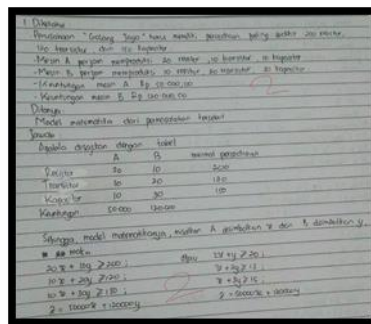 1. Diketahui
Perusahaan "Gedang Jaya" harus memiliki persediaan paling sedikit 200 resistor,
120 transistor, dan 150 kapasitor
- Mesin A perjam memproduksi 20 resistor, 10 transistor, 10 kapasitor
- Mesin B perjam memproduksi 10 resistor, 20 transistor, 30 kapasitor.
- Keuntungan mesin A Rp 50.000,00
- Keuntungan mesin B Rp 120.000,00
2
Ditanya:
Model matematika dari permasalahan tersebut
Jawab:
Apabila disajikan dengan tabel
A B minimal persediaan
Resistor 20 10 200
Transistor 10 20 120
Kapasitor 10 30 150
Keuntungan 50.000 120.000
Sehingga, model matematikanya, misalkan A disimbolkan x dan B disimbolkan y,
maka
20x + 10y ≥ 200 ;
10x + 20y ≥ 120 ;
10x + 30y ≥ 150 ;
z = 50000x + 120000y
2
Atau 2x + y ≥ 20 ;
x + 2y ≥ 12 ;
x + 3y ≥ 15 ;
z = 50000x + 120000y